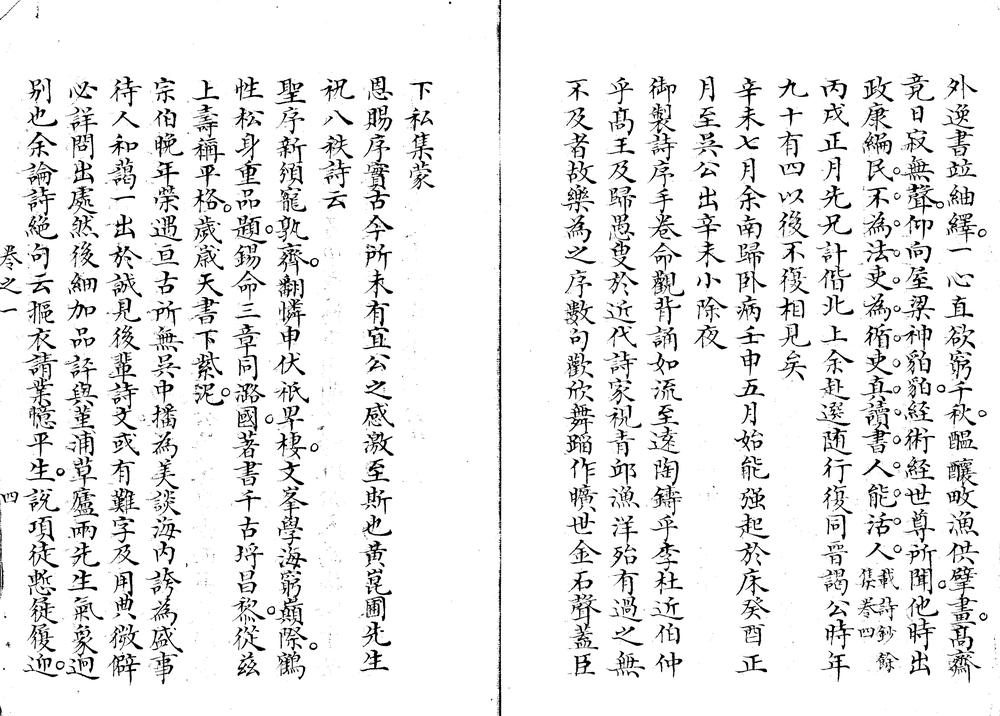 外逸書竝紬繹一心直欲窮千秋醞釀畋漁供擘畫高齋
竟日寂無聲仰向屋梁神貃貃經術經世尊所聞他時出
政康編民不為法吏為循吏真讀書人能活人載詩鈔餘集卷四
丙戌正月先兄計偕北上余赴選随行復同晋謁公時年
九十有四以後不復相見矣
辛未七月余南歸卧病壬申五月始能强起於床癸酉正
月至吳公出辛未小除夜
御製詩序手卷命觀背誦如流至遠陶鑄乎李杜近伯仲
乎髙王及歸愚叟於近代詩家視青邱漁洋殆有過之無
不及者故樂為之序數句歡欣舞蹈作曠世金石聲葢臣
下私集蒙
恩賜序實古今所未有宜公之感激至斯也黃崑圃先生
祝八秩詩云
聖序新頒寵孰齊翩憐申伏祇卑棲文峯學海窮巔際鶴
性松身重品題錫命三章同潞國著書千古埓昌黎從兹
上壽稱平格歲歲天書下紫泥
宗伯晚年榮遇亘古所無吳中播為美談海内誇為盛事
待人和藹一出於誠見後輩詩文或有難字及用典微僻
必詳問出處然後細加品評與堇浦草廬兩先生氣象迥
别也余論詩絕句云摳衣請業憶平生說項徒慙屣履迎
卷之一 四